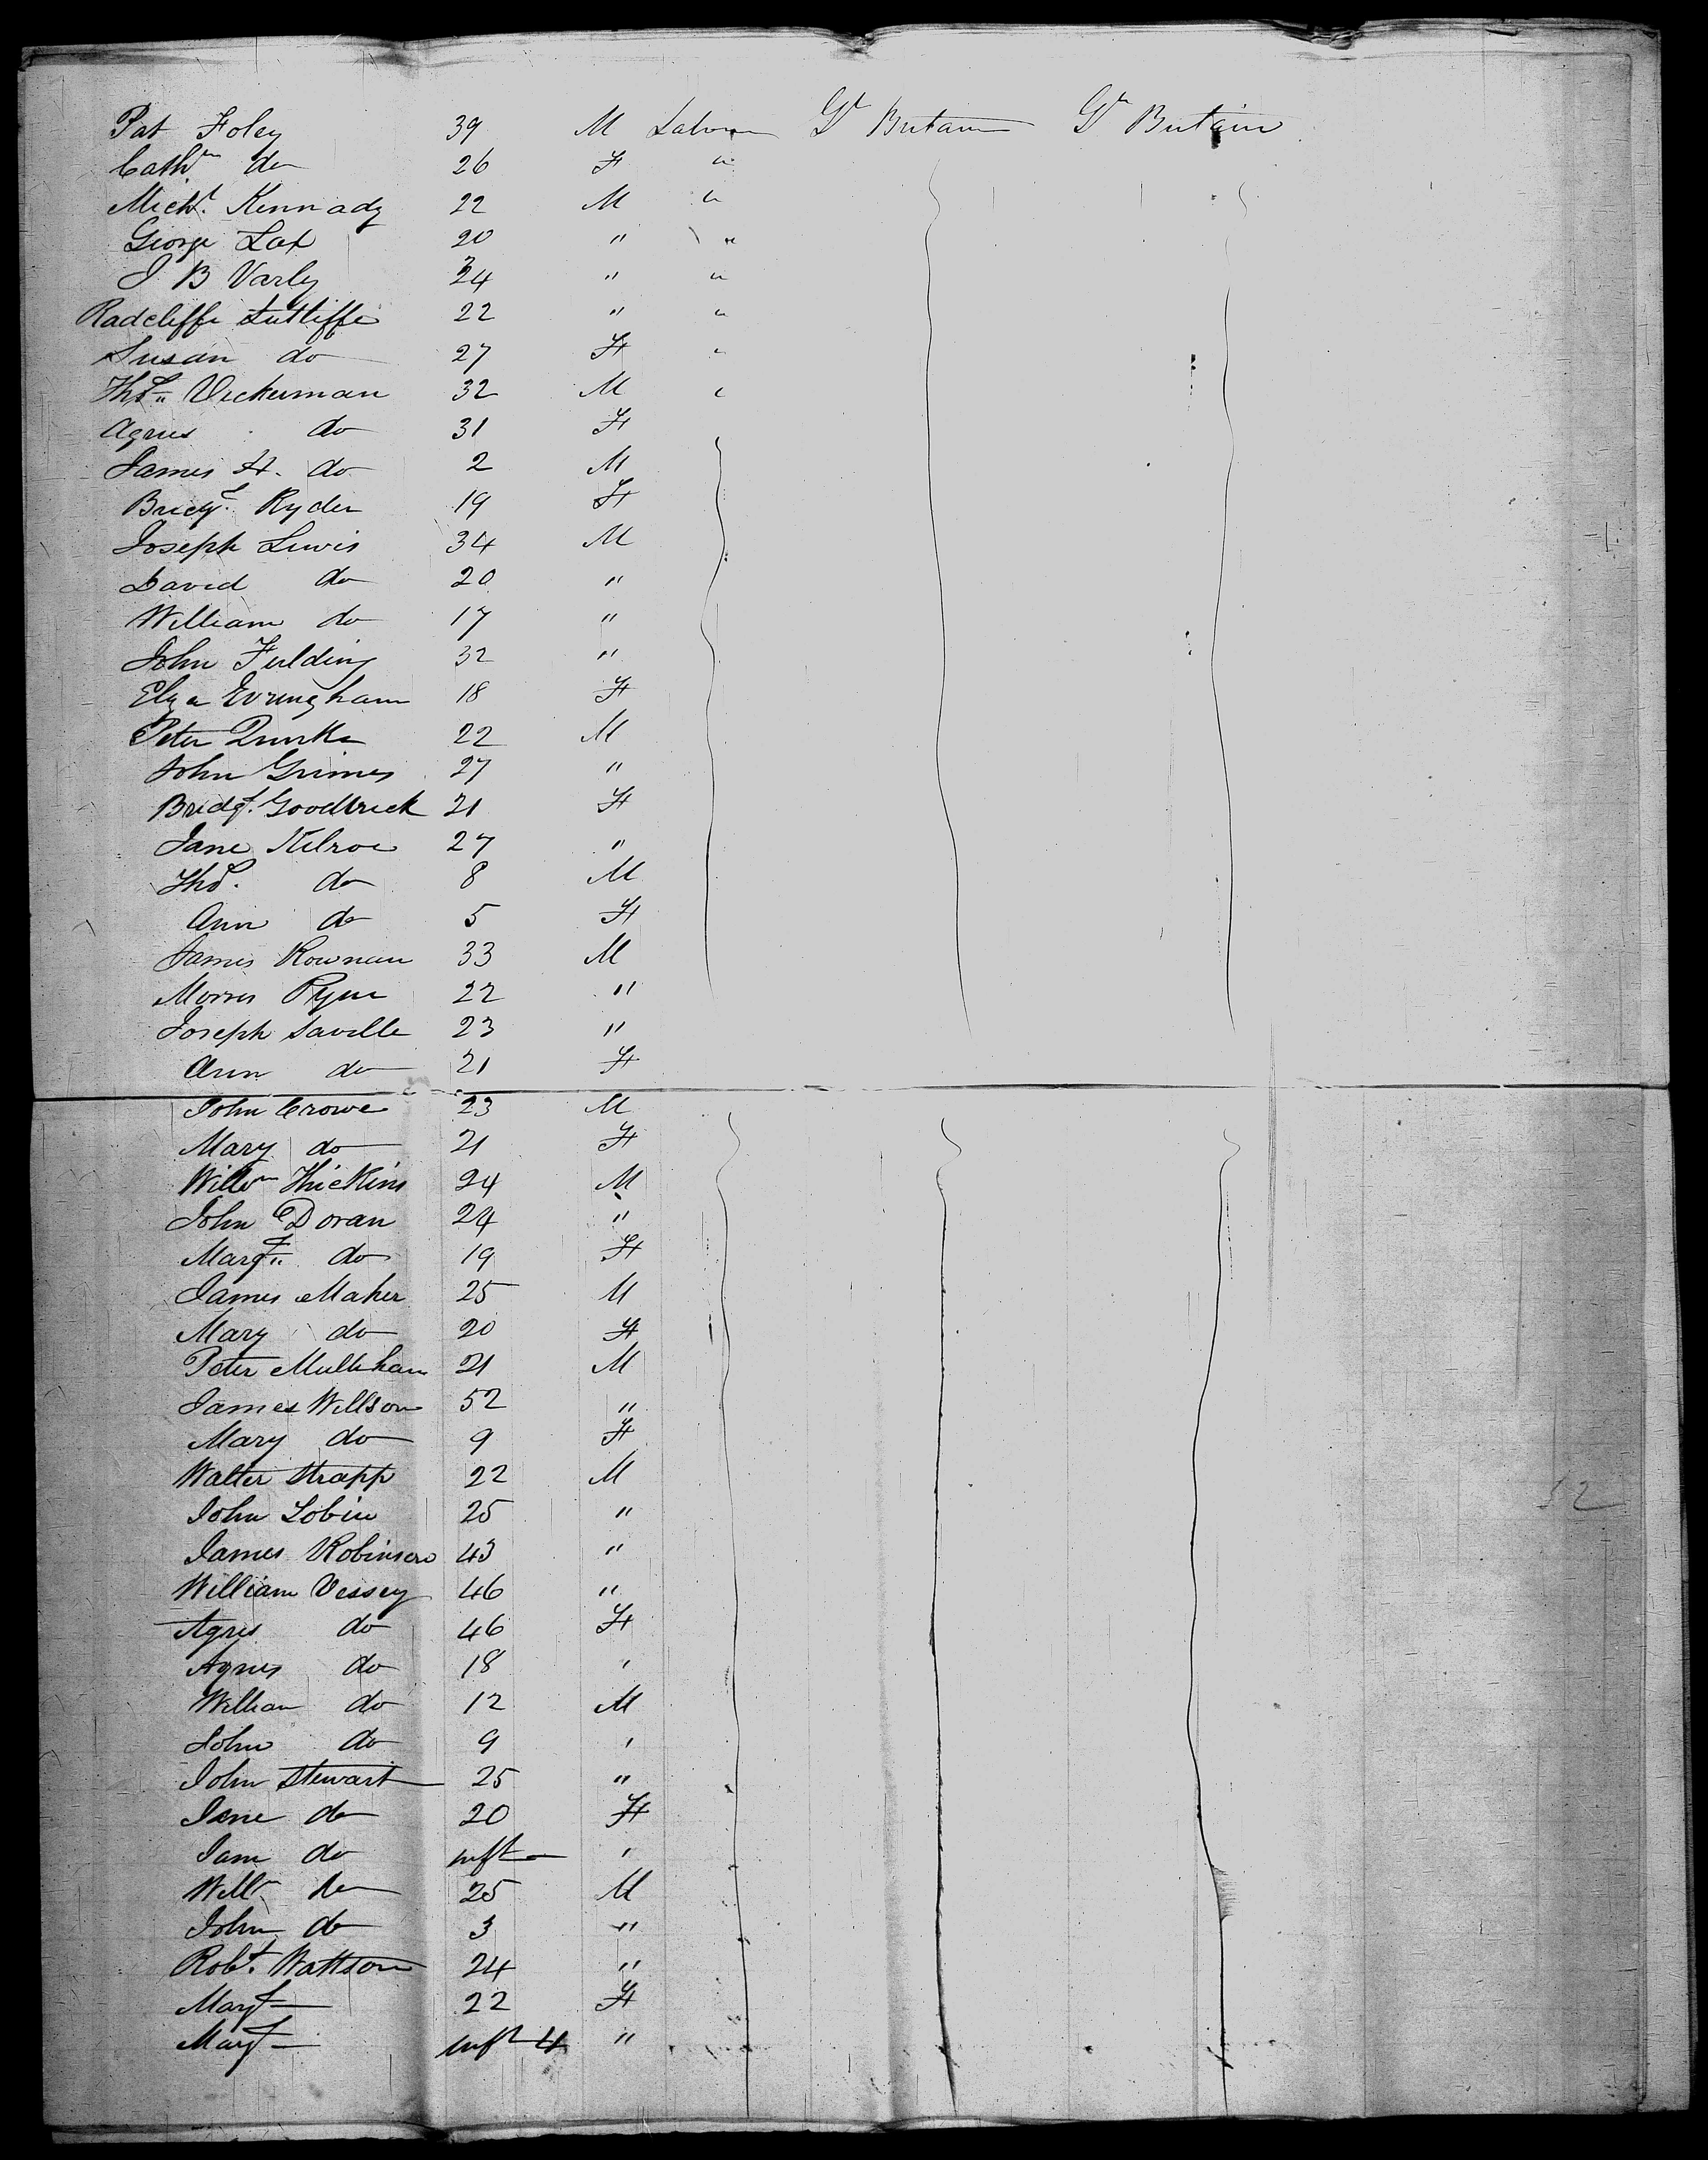 Pat Foley 39 M Labour Gt Britain Gt Britain
Cathn do 26 F "
Michl. Kennady 22 M "
George Lax 20 " "
J B Varley 24 " "
Radcliffe Sutliffe 22 " "
Susan do 27 F "
Thos. Vickerman 32 M "
Agnes do 31 F
James H. do 2 M
Bridgt. Ryder 19 F
Joseph Lewis 34 M
David do 20 "
William do 17 "
John Fielding 32 "
Eliza Everingham 18 F
Peter Quirke 22 M
John Grimes 27 "
Bridgt. Goodtrick 21 F
Jane Kilroe 27 "
Thos. do 8 M
Ann do 5 F
James Rownan 33 M
Morris Ryan 22 "
Joseph Saville 23 "
Ann do 21 F
John Crowe 23 M
Mary do 21 F
Willm Thickins 24 M
John Doran 24 "
Margt. do 19 F
James Maher 25 M
Mary do 20 F
Peter Mullehan 21 M
James Willson 52 "
Mary do 9 F
Walter Strapp 22 M
John Tobin 25 "
James Robinson 43 "
William Vessey 46 "
Agnes do 46 F
Agnes do 18 "
William do 12 M
John do 9 "
John Stewart 25 "
Jane do 20 F
Jane do inft "
Willm do 25 M
John do 3 "
Robt. Wattson 24 "
Margt — 22 F
Margt — inft 4 "